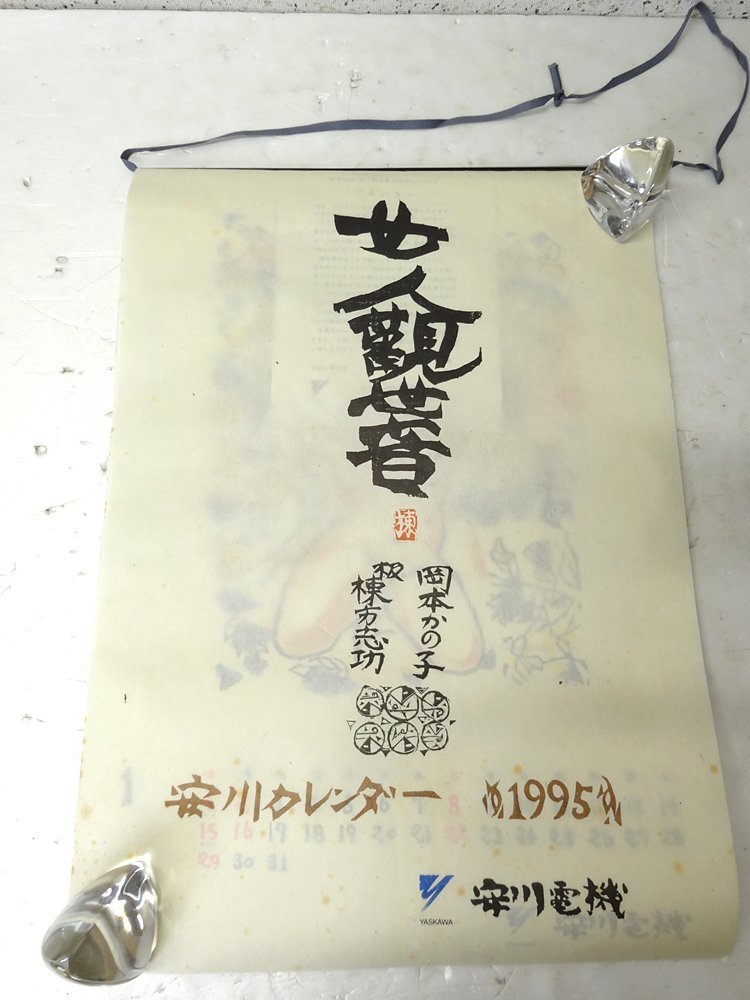 女人觀世音
棟
岡本かの子
板
棟方志功
安川カレンダー 1995
1
8
15 16 17 18 19 20 21 22 23 24 25 26 27 28
29 30 31
YASKAWA
安川電機